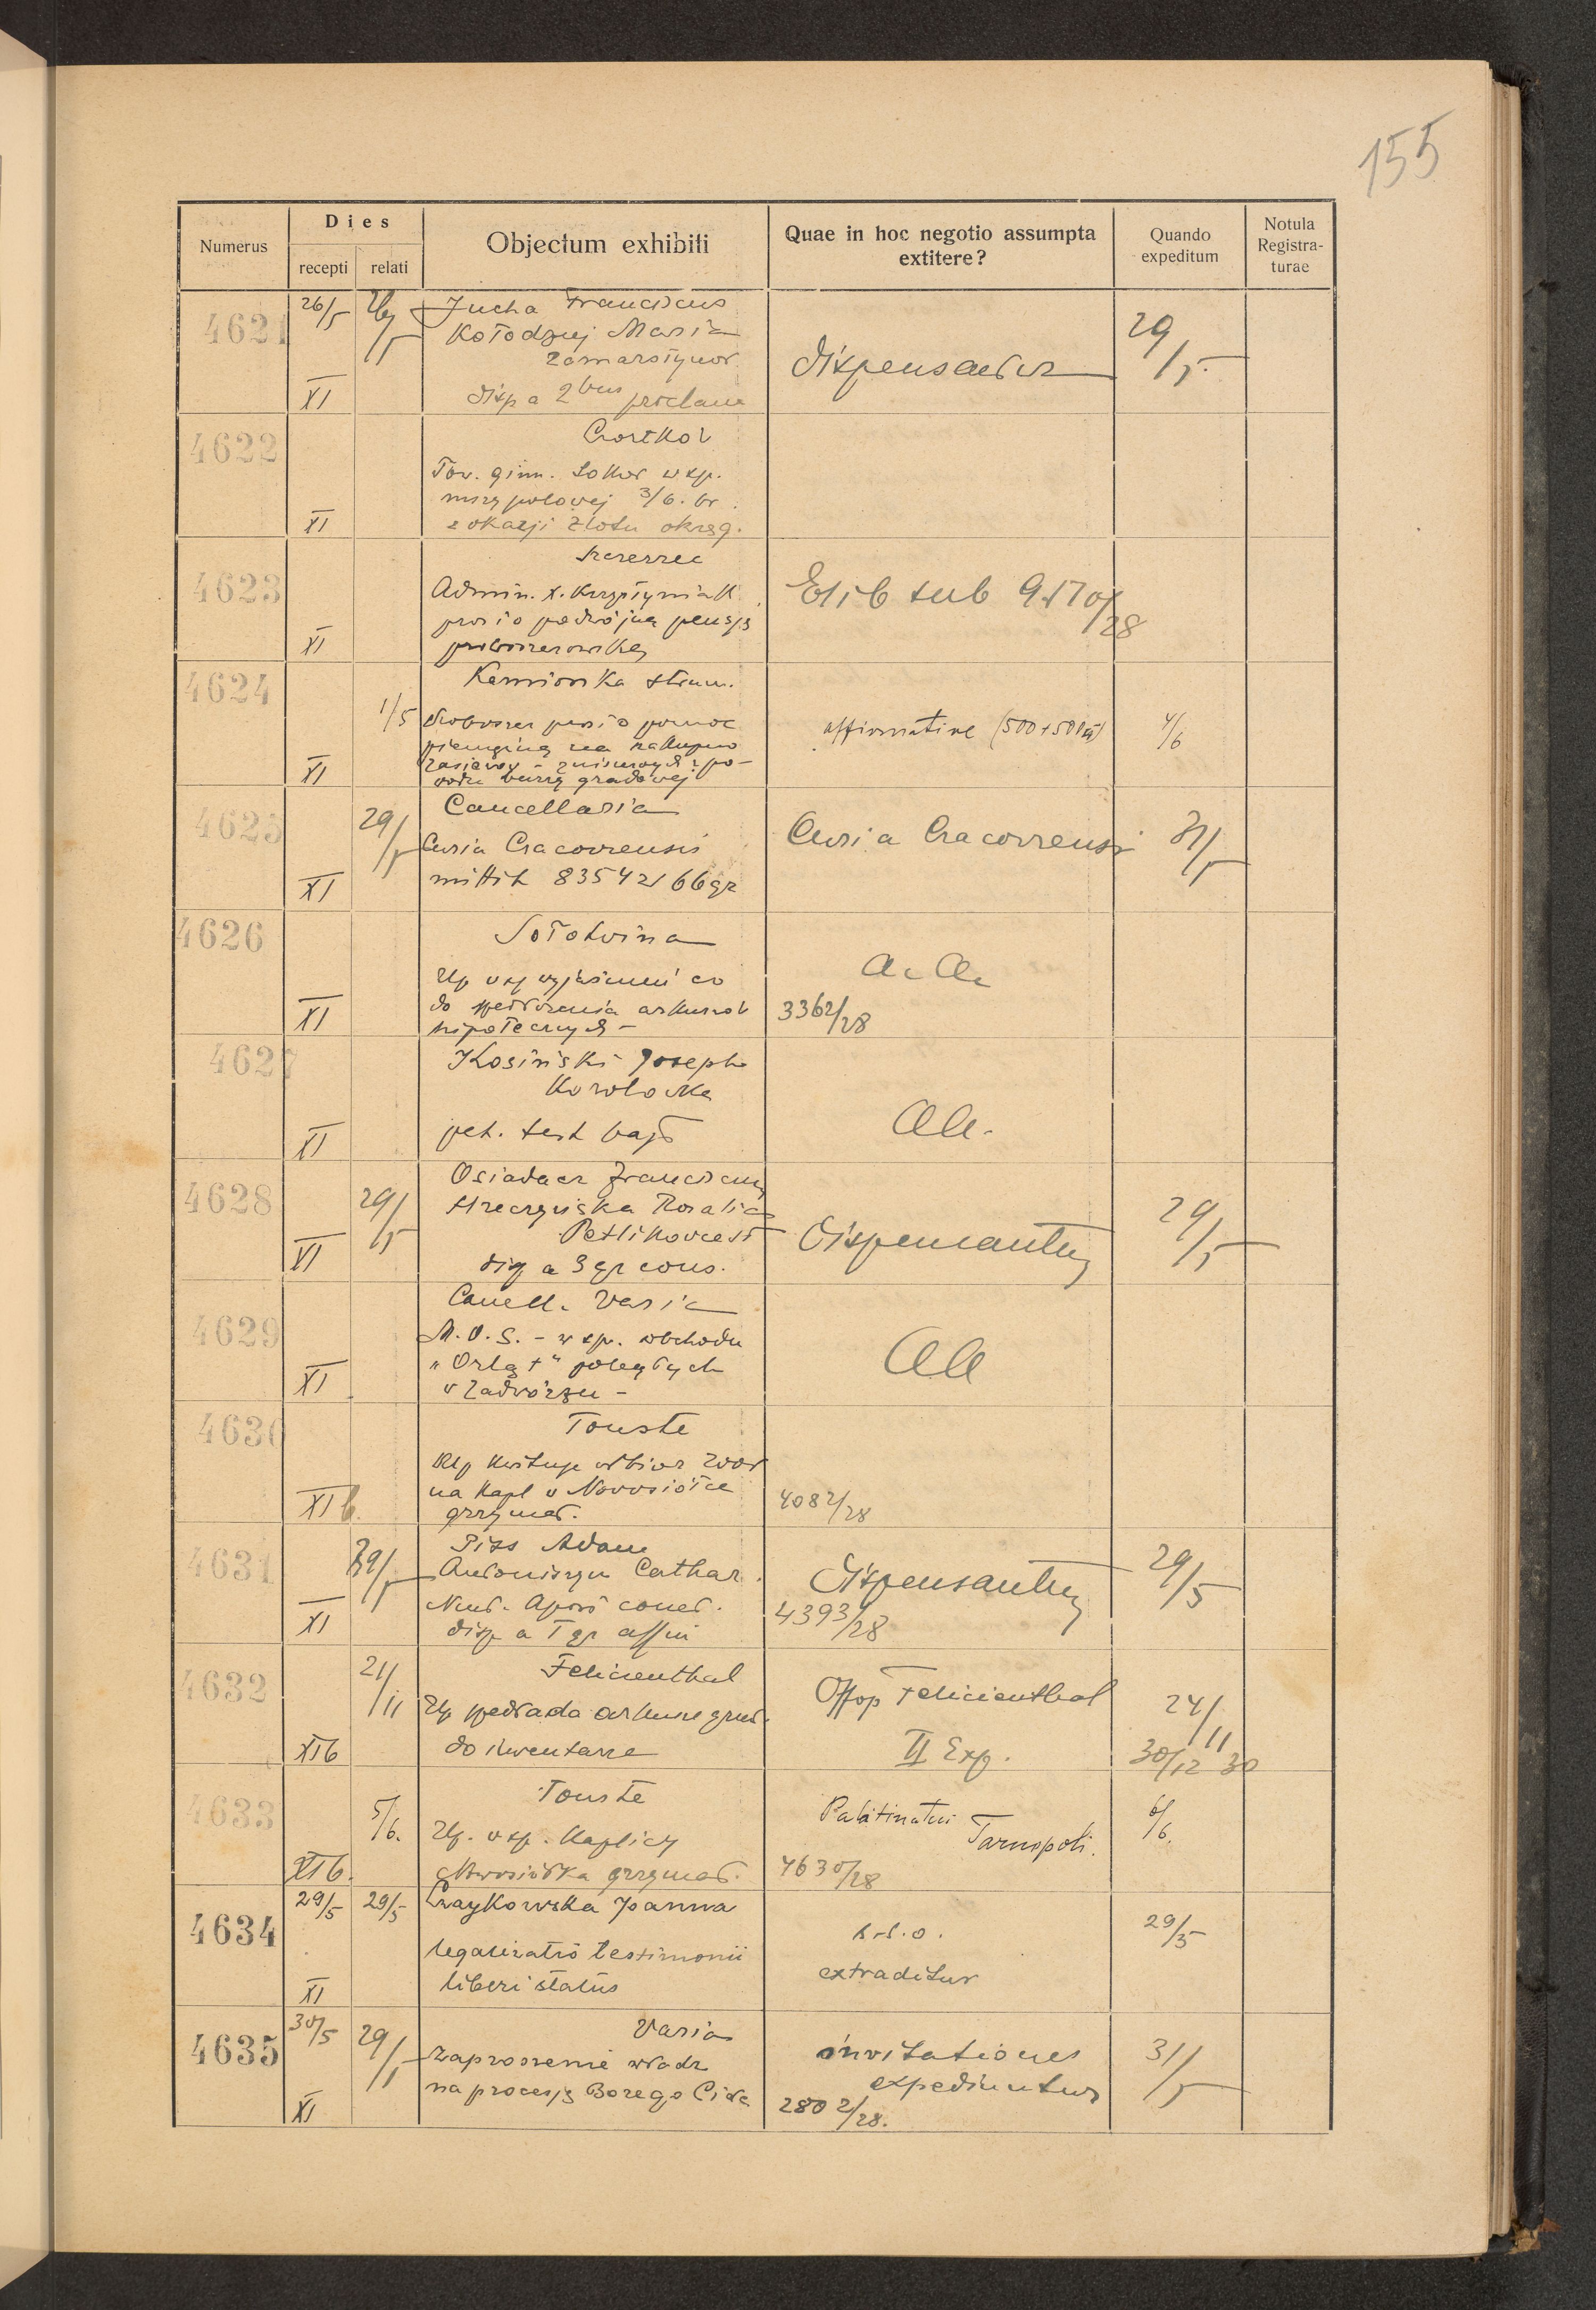 155
Numerus
Dies
recepti
relati
Objectum exhibiti
Quae in hoc negotio assumpta
extitere?
Quando
expeditum
Notula
Registra-
turae
4621
26/5
XI
Jucha Franciscus
Kołodziej Maria
Zamarstynów
disp a 2bus proclam
dispensantur
29/5.
4622
XI
Czortków
Tow. gimn. Sokół w sp.
mszy polowej 3/6. br.
z okazji Zlotu okręg.
4623
XI
Szczerzec
Admin. X.
prosi o podwójną pensję
proboszczowską
Exib sub 9170/28
4624
1/5
XI
Kamionka strum.
Proboszcz prosi o pomoc
pieniężną na zakupno
zasiewów - zniszczonych z po-
wodu burzy gradowej
affirmative (500+500 zł)
4/6
4625
29/5
XI
Cancellaria
Curia Cracoviensis
mittit 83542/66gr
Curia Cracoviensi
31/5
4626
XI
Sołotwina
Up w sp wyjaśnień co
do arkuszów
hipotecznych -
a. a.
3362/28
4627
XI
Kosiński Joseph
Korolówka
pet. test bapt
aa.
4628
29/5
XI
Osiadacz Franciscus
Rosalia
Petlikowce st
disp a 3 gr cons.
Dispensantur
29/5
4629
XI
Cancell. Varia
M.O.S. - w sp. obchodu
"Orląt" poległych
w Zadwórzu -
aa
4630
XI b.
Touste
Up
na kapl w Nowosiółce
grzymał.
4082/28
4631
29/5
XI
Piss Adam
Antoniszyn Cathar.
disp a I gr affin
Dispensantur
4393/28
29/5
4632
21/11
XI b
Felicienthal
Up przedkłada arkusze grunt.
do inwentarza
Offop Felicienthal
II Exp.
24/11
30/12 30
4633
5/6.
XI b.
Touste
Up. w sp. kaplicy
Nowosiółka grzymał.
Palatinatui
Tarnopoli.
4630/28
6/6.
4634
29/5
29/5
XI
Czaykowska Joanna
legalizatio testimonii
liberi status
s.r.o.
extraditur
29/5
4635
30/5
29/5
XI
Varia
Zaproszenie władz
na procesję Bożego Ciała
invitationes
expediuntur
2802/28.
31/5